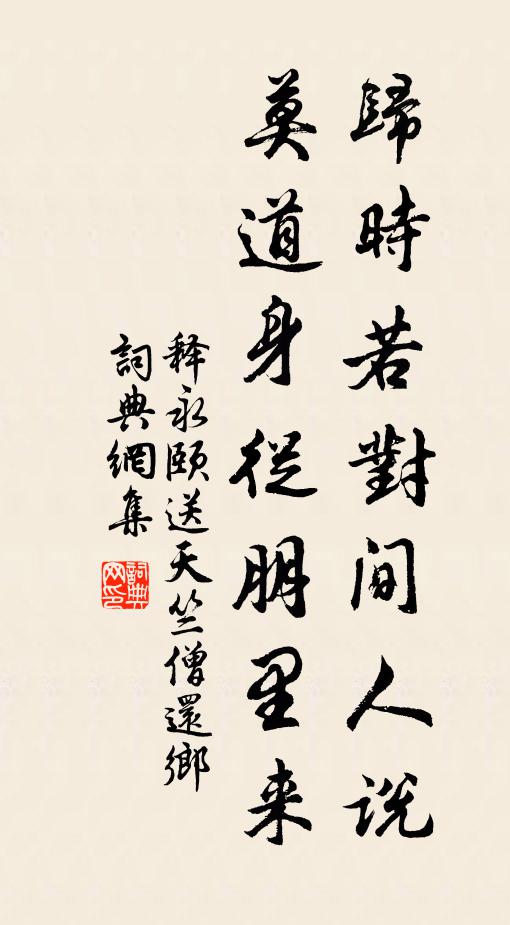 歸時若對間人説
莫道身從朋里来
释永颐送天竺僧還鄉
詞典網集
詞典网印